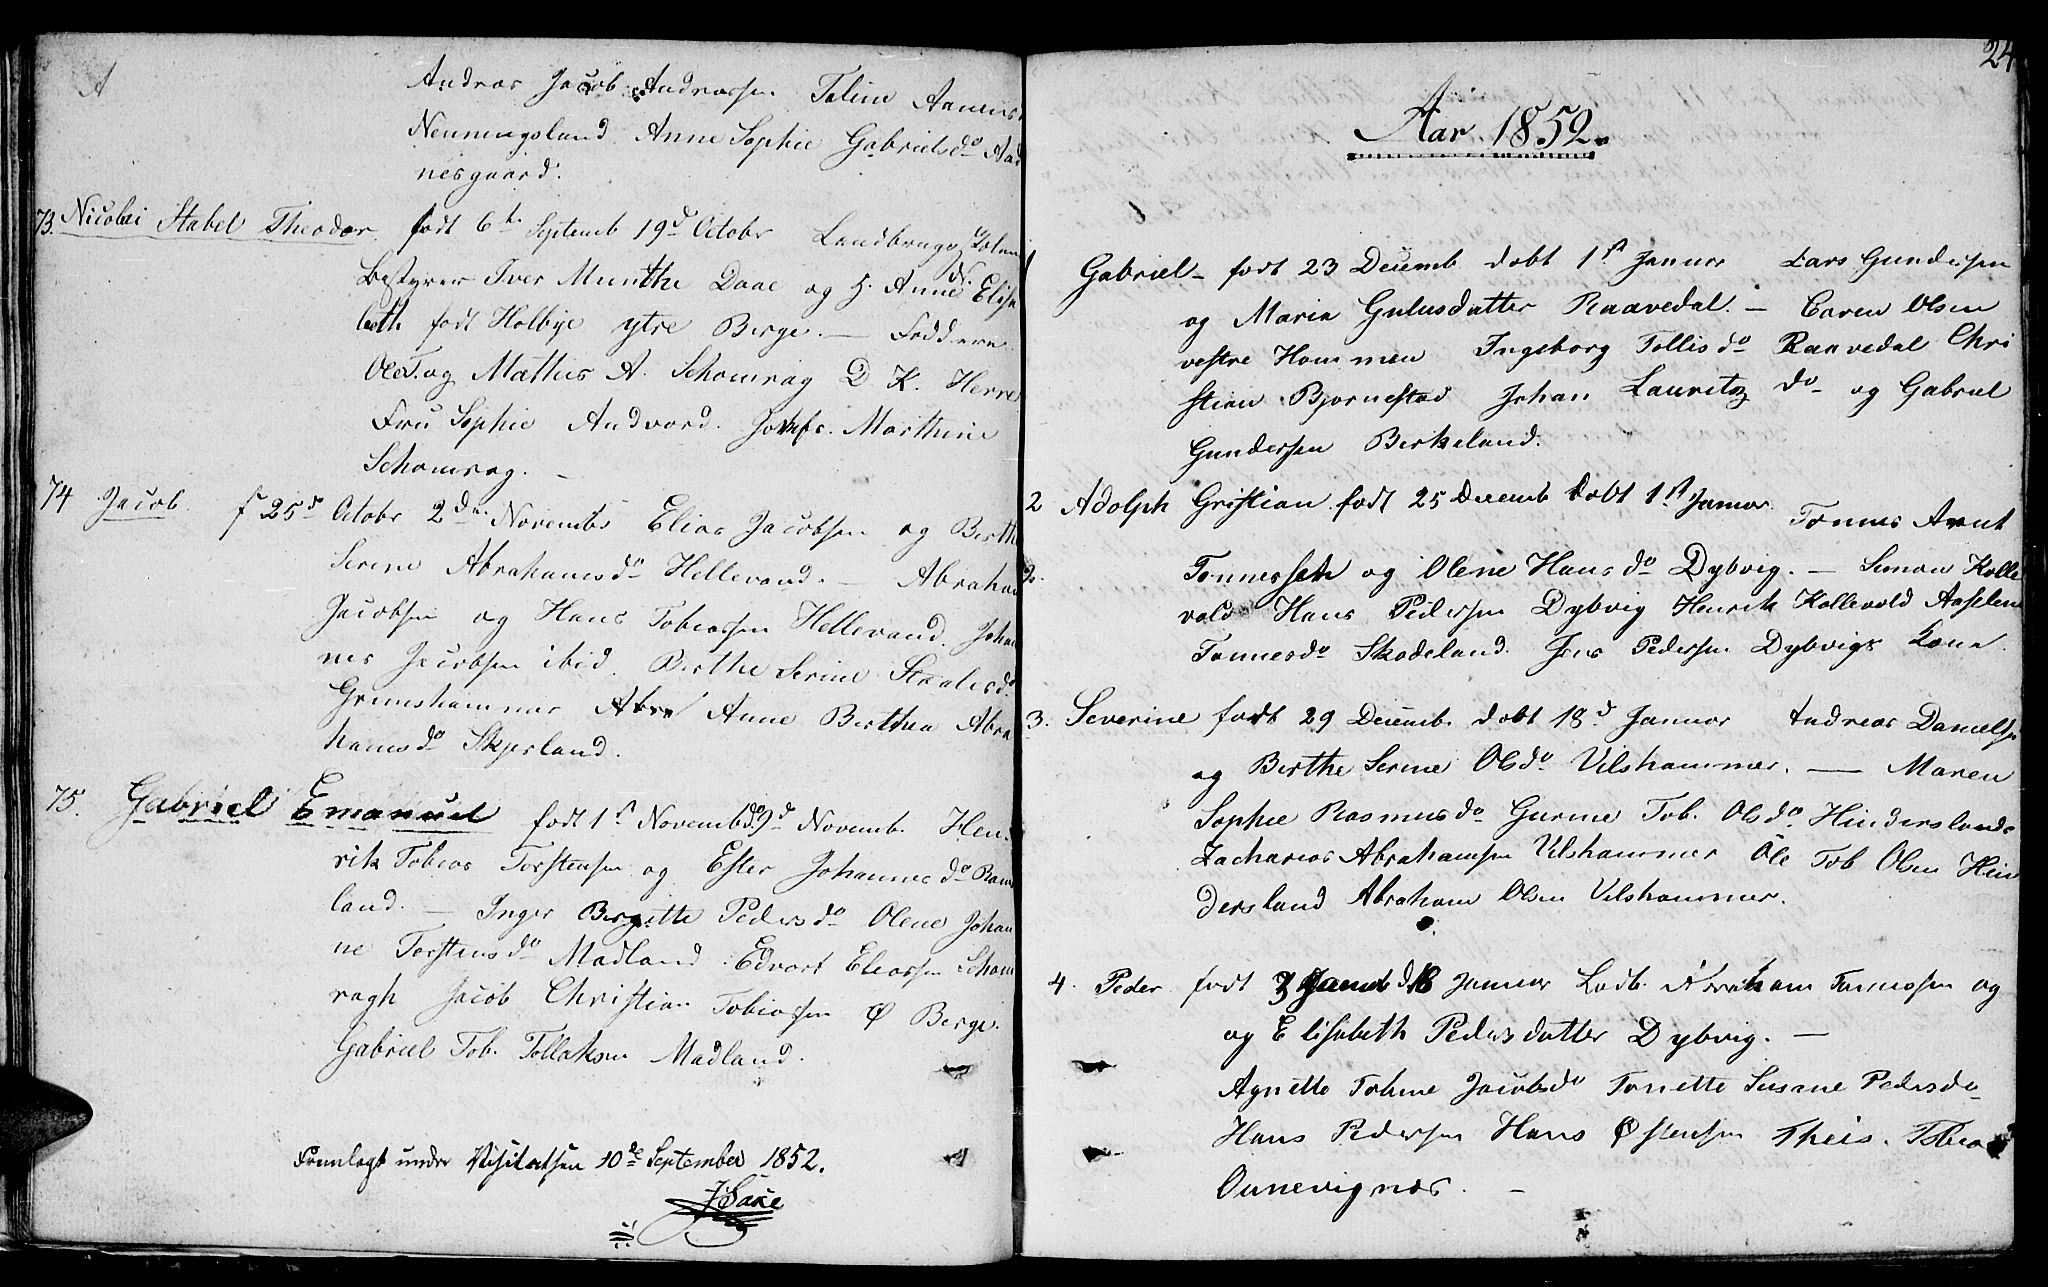 A
Andreas Jacob Andreassen Taline Aanens
Nenningsland Anne Sophie Gabrielsdo Aad
nesgaard.
73. Nicolai Stabel Theodor. født 6te Septemb 19d Octobr Landbrugs
Bestyrer Iver Munthe Daae og H. Anne Elisa
beth født Holbye ytre Berge. — Faddere
Ole T. og Mathies A. Schomrag D. K. Herre
Fru Sophie Andvord. Marthine
Schomrag. —
74 Jacob. f 25d Octobr 2den Novembr Elias Jacobsen og Berthe
Serine Abrahamsdo Hellevand. — Abraham
Jacobsen og Hans Tobiassen Hellevand. Johan
nes Jacobsen ibid. Berthe Serine Staalesdo
Grimshammer Anne Berthea Abra
hamsdo Skjerland.
75. Gabriel Emanuel født 1st Novemb 9d Novemb. Hen
rik Tobias Torstensen og Ester Johannesdo Rame
land. — Inger Bergitte Pedersdo Olene Johan
ne Torstensdo Madland. Edvart Eleasen Schom
ragh Jacob Christian Tobiassen Ø Berge.
Gabriel Tob. Tollaksen Madland.
Fremlagt under Visitatsen 10de September 1852.
24
Aar 1852.
1 Gabriel – født 23 Decemb døbt 1st Januar Lars Gundersen
og Maria Gulusdatter Raavedal. — Caren Olsen
vestre Hommen Ingeborg Tollisdo Raavedal Chri
stian Bjornestad Johan Lauritz do og Gabriel
Gundersen Birkeland.
2 Adolph Gristian født 25 Decemb døbt 1st Januar Tønnes Arnt
Tønnessen og Olene Hansdo Dybvig. — Simon Kolle
vold Hans Pedersen Dybvig Henrik Kollevold Aaselene
Tønnesdo Skadeland. Jens Pedersen Dybvigs Kone.
3. Severine født 29 Decemb. døbt 18d Januar Andreas Danielsen
og Berthe Serine Olsdo Vilshammer. — Maren
Sophie Rasmusdo Gurine Tob. Olsdo Hindersland
Zacharias Abrahamsen Vilshammer Ole Tob Olsen Hin
dersland Abraham Olsen Vilshammer.
4. Peder født 3 d 18 Januar Ladb. Abraham Tønnessen og
og Elisabeth Pedersdatter Dybvig. —
Agnette Tobine Jacobsdo Tonette Susane Pedersdo
Hans Pedersen Hans Østensen Theis. Tobias
Ounevignæs. —